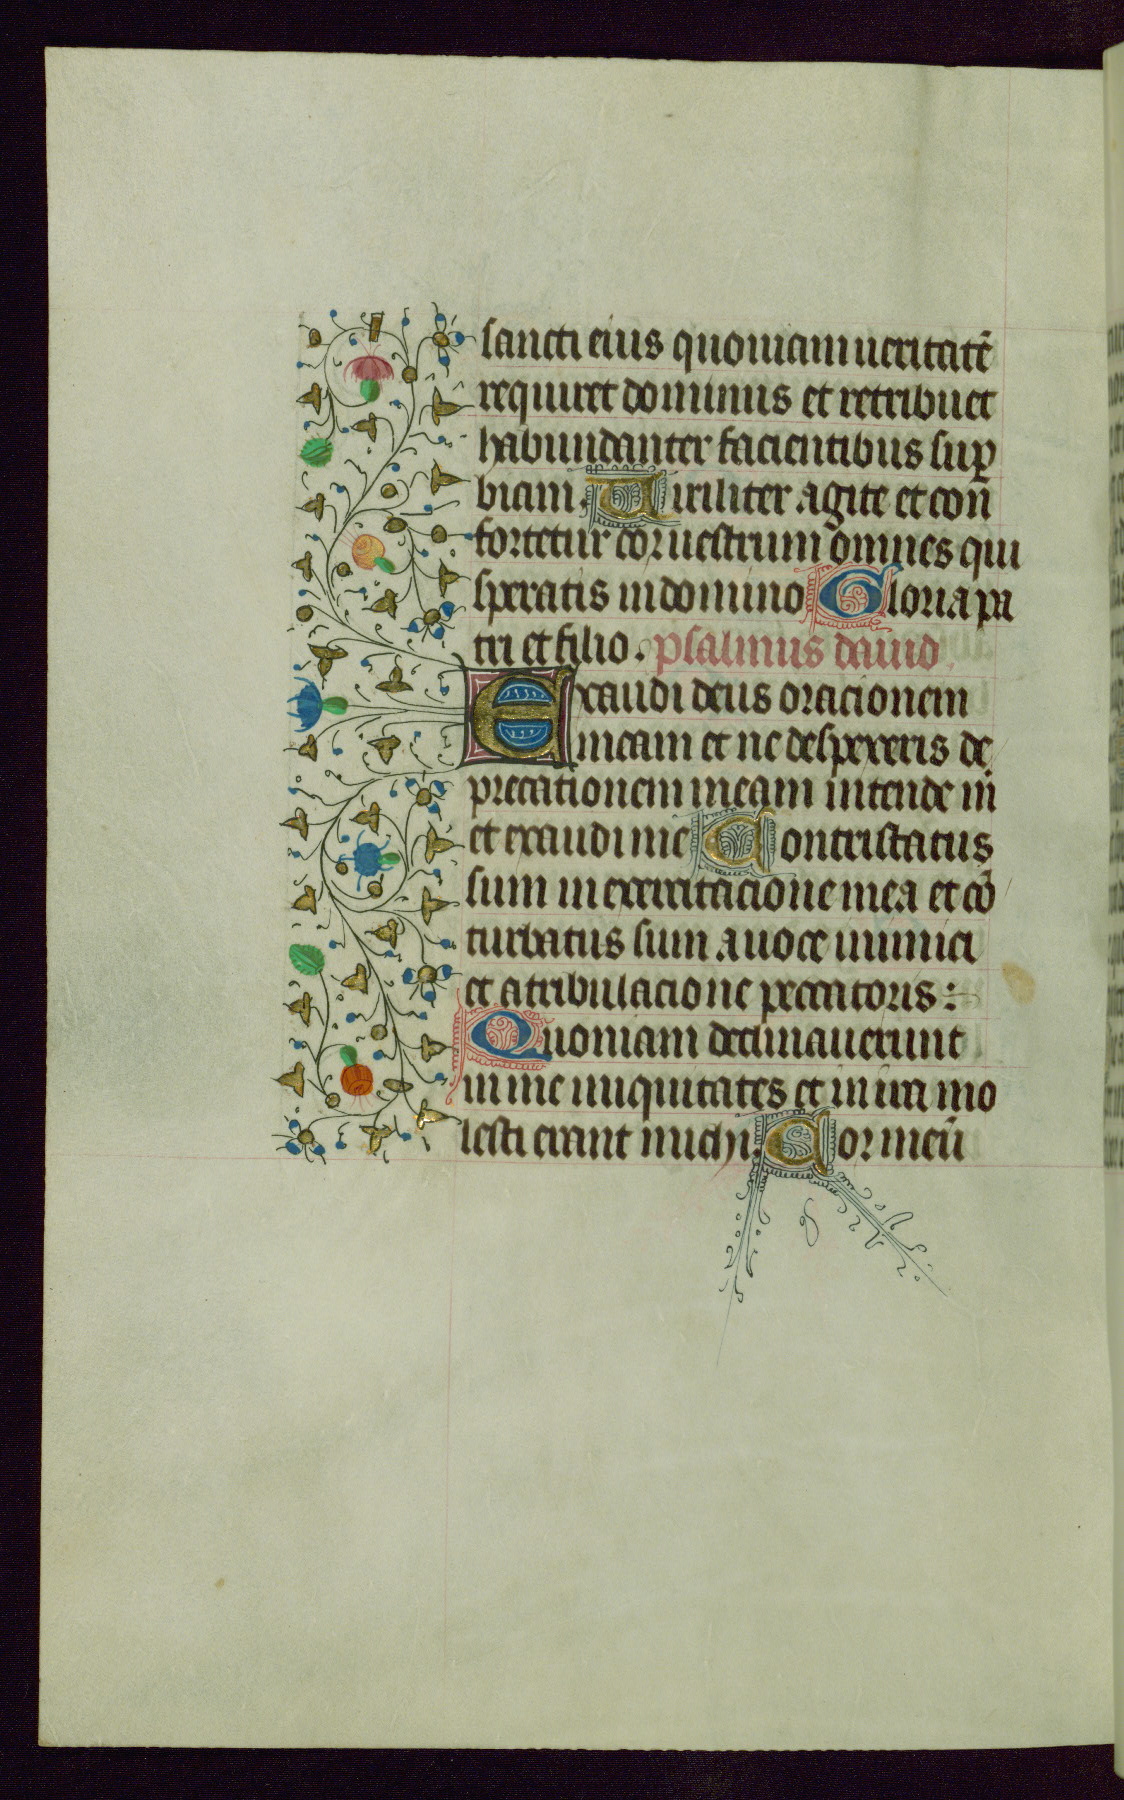 sancti eius quoniam ueritatē
requiret dominus et retribuet
habundanter facientibus sup̱
biam. Uiriliter agite et con
fortetur cor uestrum omnes qui
speratis in domino Gloria pa
tri et filio. psalmus dauid
Exaudi deus oracionem
meam et ne despexeris de
precationem meam intende m̄
et exaudi me Contristatus
sum in exercitacione mea et cō
turbatus sum a uoce inimici
et a tribulacione peccatoris:
Quoniam declinauerunt
in me iniquitates et in ira mo
lesti erant michi. Cor meū